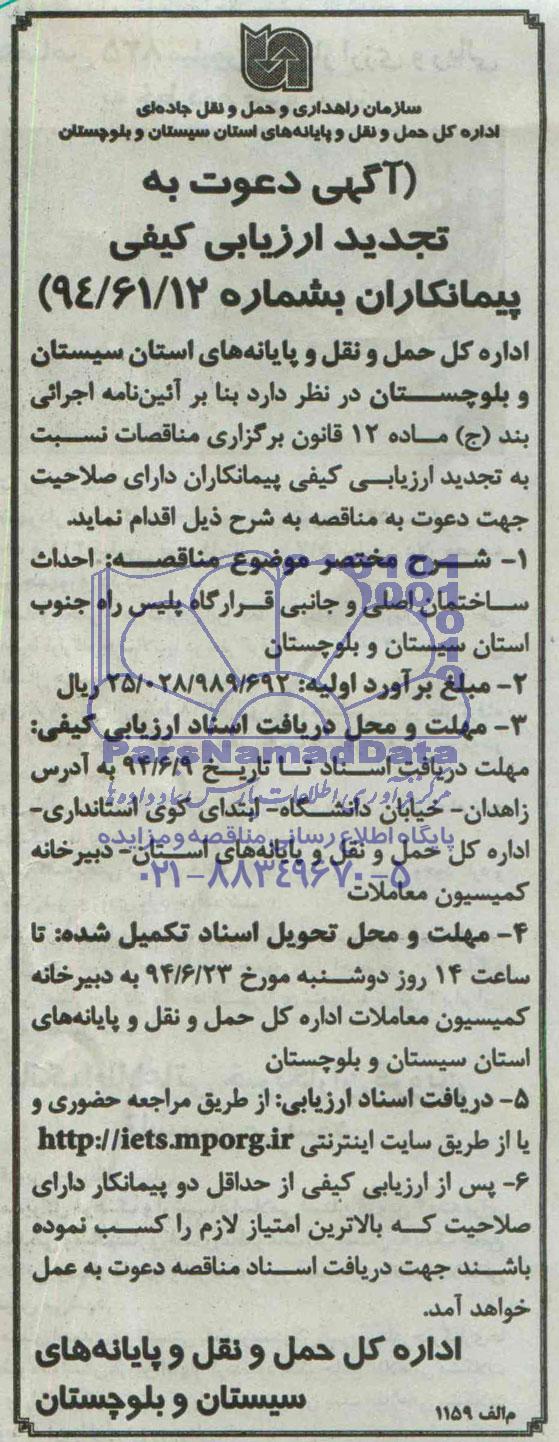 سازمان راهداری و حمل و نقل جاده‌ای
اداره کل حمل و نقل و پایانه‌های استان سیستان و بلوچستان
(آگهی دعوت به
تجدید ارزیابی کیفی
پیمانکاران بشماره ۹۴/۶۱/۱۲)
اداره کل حمل و نقل و پایانه‌های استان سیستان
و بلوچستان در نظر دارد بنا بر آئین‌نامه اجرائی
بند (ج) ماده ۱۲ قانون برگزاری مناقصات نسبت
به تجدید ارزیابی کیفی پیمانکاران دارای صلاحیت
جهت دعوت به مناقصه به شرح ذیل اقدام نماید.
۱- شرح مختصر موضوع مناقصه: احداث
ساختمان اصلی و جانبی قرارگاه پلیس راه جنوب
استان سیستان و بلوچستان
۲- مبلغ برآورد اولیه: ۲۵/۰۲۸/۹۸۹/۶۹۲ ریال
۳- مهلت و محل دریافت اسناد ارزیابی کیفی:
ParsNamadData
مهلت دریافت اسناد تا تاریخ ۹۴/۶/۹ به آدرس
مرکز فرآوری اطلاعات پارس نماد داده ها
زاهدان- خیابان دانشگاه- ابتدای کوی استانداری-
پایگاه اطلاع رسانی مناقصه و مزایده
اداره کل حمل و نقل و پایانه‌های استان- دبیرخانه
۰۲۱-۸۸۳۴۹۶۷۰-۵
کمیسیون معاملات
۴- مهلت و محل تحویل اسناد تکمیل شده: تا
ساعت ۱۴ روز دوشنبه مورخ ۹۴/۶/۲۳ به دبیرخانه
کمیسیون معاملات اداره کل حمل و نقل و پایانه‌های
استان سیستان و بلوچستان
۵- دریافت اسناد ارزیابی: از طریق مراجعه حضوری و
یا از طریق سایت اینترنتی http://iets.mporg.ir
۶- پس از ارزیابی کیفی از حداقل دو پیمانکار دارای
صلاحیت که بالاترین امتیاز لازم را کسب نموده
باشند جهت دریافت اسناد مناقصه دعوت به عمل
خواهد آمد.
اداره کل حمل و نقل و پایانه‌های
سیستان و بلوچستان
م‌الف ۱۱۵۹